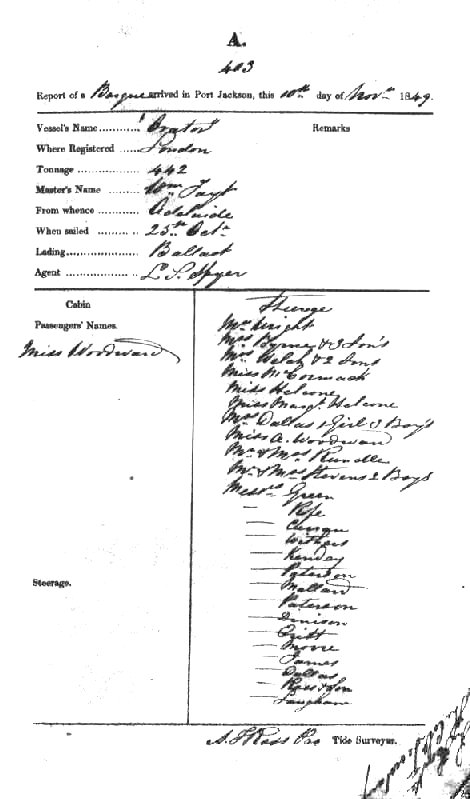 A.
403
Report of a Barque arrived in Port Jackson, this 10th day of Novr 1849.
Vessel's Name ........... Orator Remarks
Where Registered ...... London
Tonnage ................... 442
Master's Name ........ Wm Tayt
From whence ........... Adelaide
When sailed ............ 25th Octr
Lading ..................... Ballast
Agent ..................... L. S. Spyer
Cabin
Passengers' Names.
Miss Woodward
Steerage.
Steerage
Mr Wright
Mrs Byrney & 3 Son's
Mrs Welch & 2 Sons
Miss McCormack
Miss Helcone
Miss Margt. Helcone
Mrs Dallas 1 Girl 3 Boy's
Miss A. Woodward
Mr & Mrs Rundle
Mr & Mrs Stevens 2 Boy's
Messrs Green
— Rofe
— Withers
— Kenday
— Paterson
— Mallard
— Paterson
— Denison
— Moore
— James
— Dallas
— Ross & Son
— Laugham
A. G. Ross Pro Tide Surveyor.